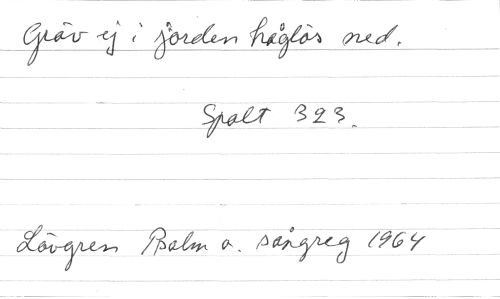 Gräv ej i jorden håglös ned.
Spalt 323.
Lövgren Psalm o. sångreg 1964